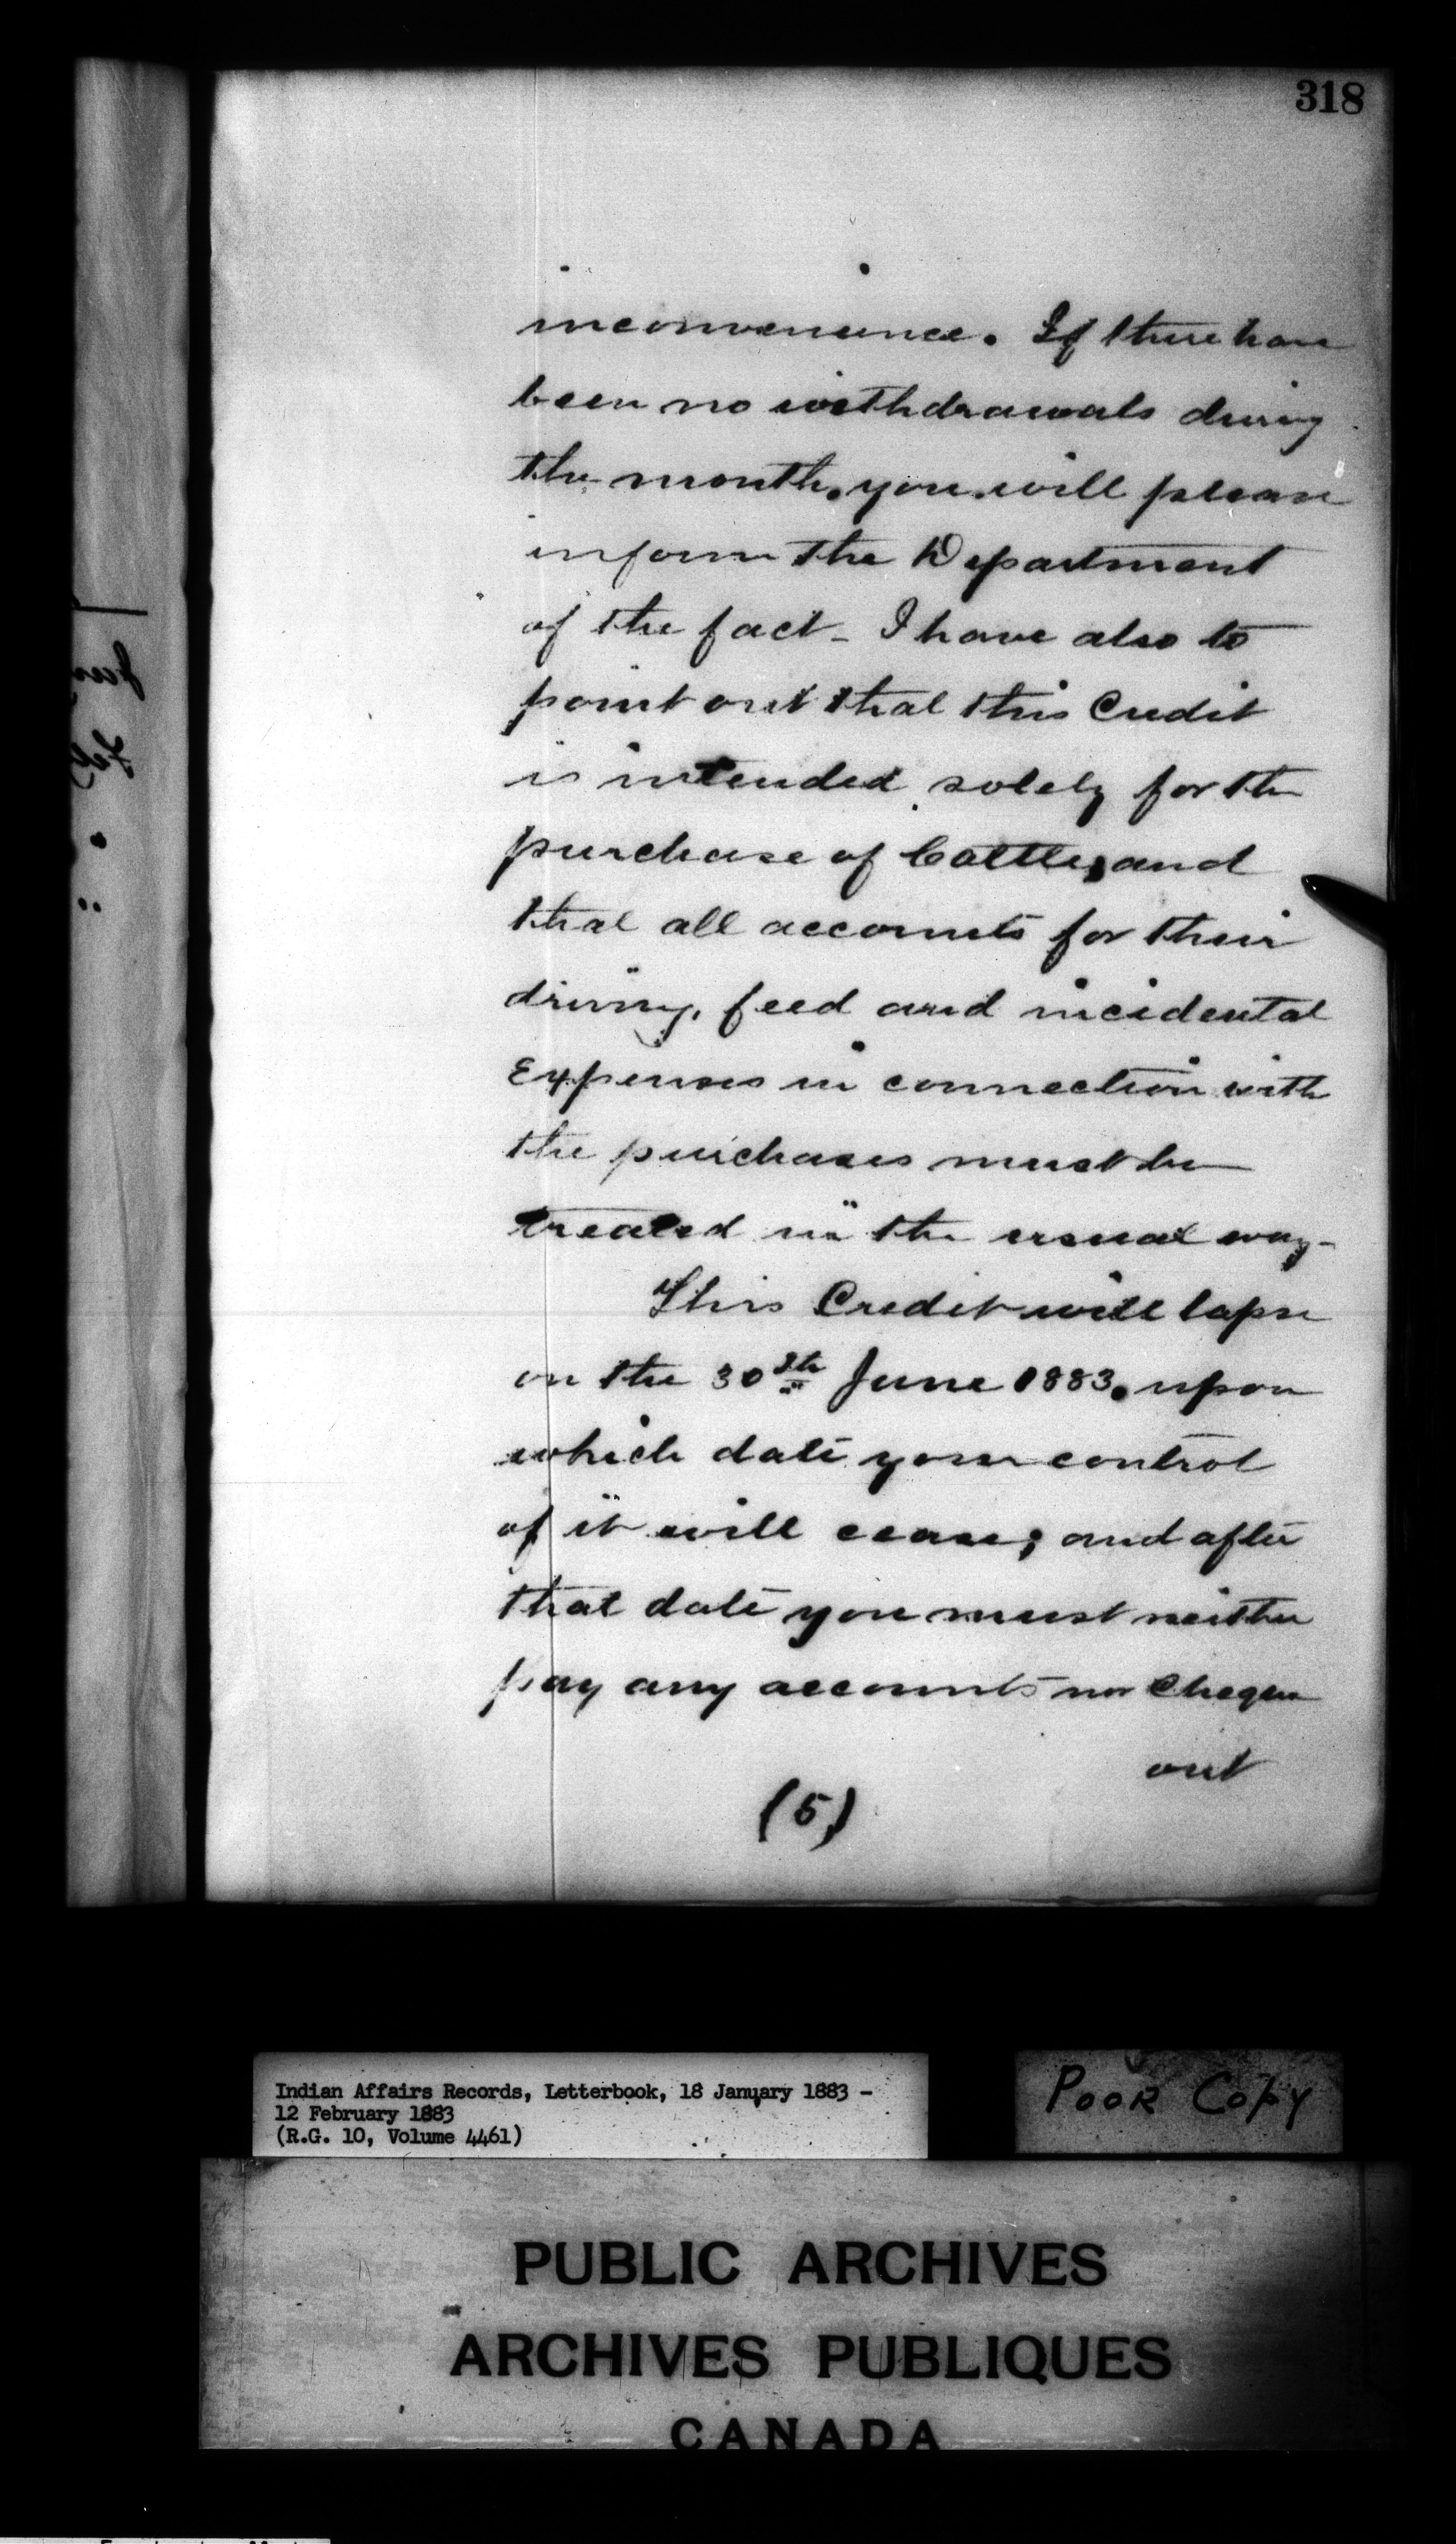 318
inconvenience. If there have
been no withdrawals during
the month, you will please
inform the Department
of the fact - I have also to
point out that this Credit
is intended solely for the
purchase of Cattle, and
that all accounts for their
driving, feed and incidental
Expenses in connection with
the purchases must be
treated in the usual way -
This Credit will lapse
on the 30th June 1883, upon
which date your control
of it will cease; and after
that date you must neither
pay any accounts nor Cheque
out
(5)
Indian Affairs Records, Letterbook, 18 January 1883 -
12 February 1883
(R.G. 10, Volume 4461)
POOR COPY
PUBLIC ARCHIVES
ARCHIVES PUBLIQUES
CANADA